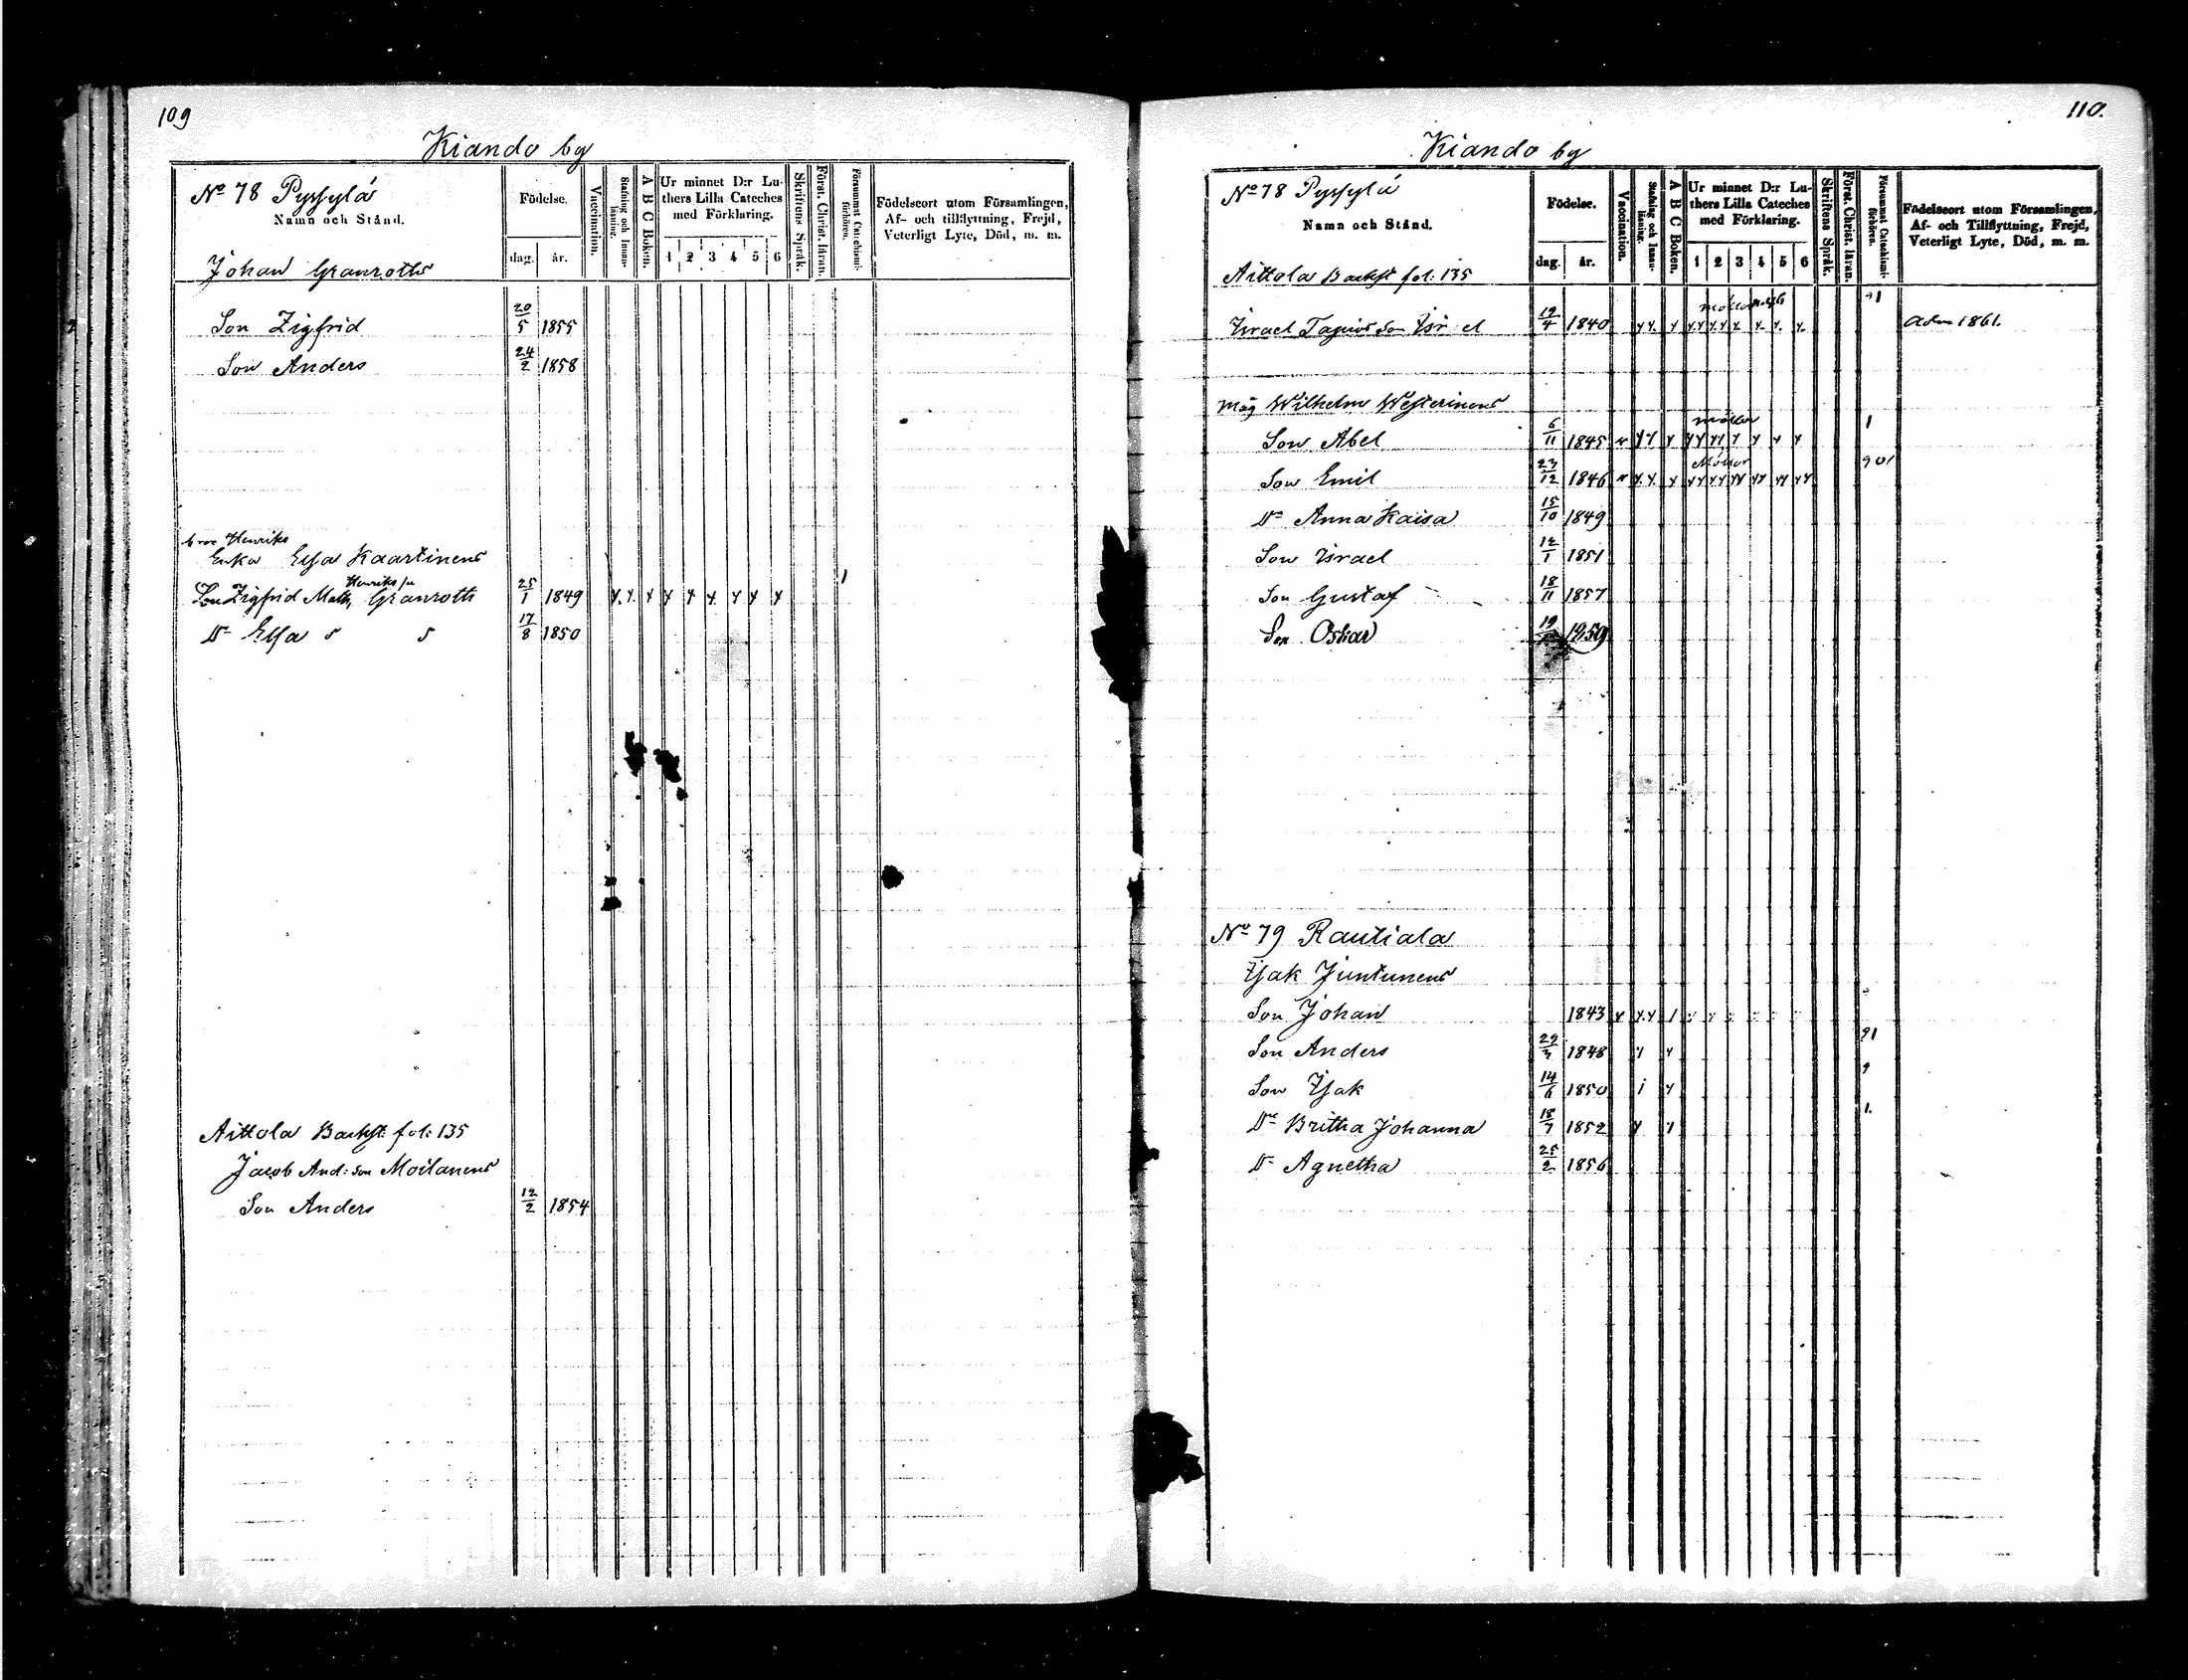 109
Kiando by
No 78 Pyssylä
Namn och Stånd.
Födelse.
dag. år.
Vaccination.
Stafning och Innanläsning.
A B C Boken.
Ur minnet D:r Luthers Lilla Cateches med Förklaring.
1 2 3 4 5 6
Skriftens Språk.
Först. Christ. läran.
Försummat Catechismiförhören.
Födelseort utom Församlingen, Af- och tillflyttning, Frejd, Veterligt Lyte, Död, m. m.
Johan Granroths
Son Zigfrid 20/5 1855
Son Anders 24/2 1858
Henriks
Enka Elsa Kaartinens
Henriks
Son Zigfrid Granroth 25/1 1849 1
Dr Elsa 17/8 1850
Aittola Backst: fol: 135
Jacob And: son Moilanens
Son Anders 12/2 1854
110.
Kiando by
No 78 Pyssylä
Namn och Stånd.
Födelse.
dag. år.
Vaccination.
Stafning och Innanläsning.
A B C Boken.
Ur minnet D:r Luthers Lilla Cateches med Förklaring.
1 2 3 4 5 6
Skriftens Språk.
Först. Christ. läran.
Försummat Catechismiförhören.
Födelseort utom Församlingen, Af- och Tillflyttning, Frejd, Veterligt Lyte, Död, m. m.
Aittola Backst fol: 135
Israel Son 1840 Adm 1861.
Måg Wilhelm Westerinens
Son Abel 6/11 1845 1
Son Emil 23/12 1846 901
Dr Anna Kaisa 15/10 1849
Son Israel 12/1 1851
Son Gustaf 18/11 1857
Son Oskar 1859
No 79 Rautiala
Isak Juntunens
Son Johan 1843
Son Anders 1848 91
Son Isak 14/6 1850 9
Dr Britha Johanna 18/7 1852 1.
Dr Agnetha 25/2 1856